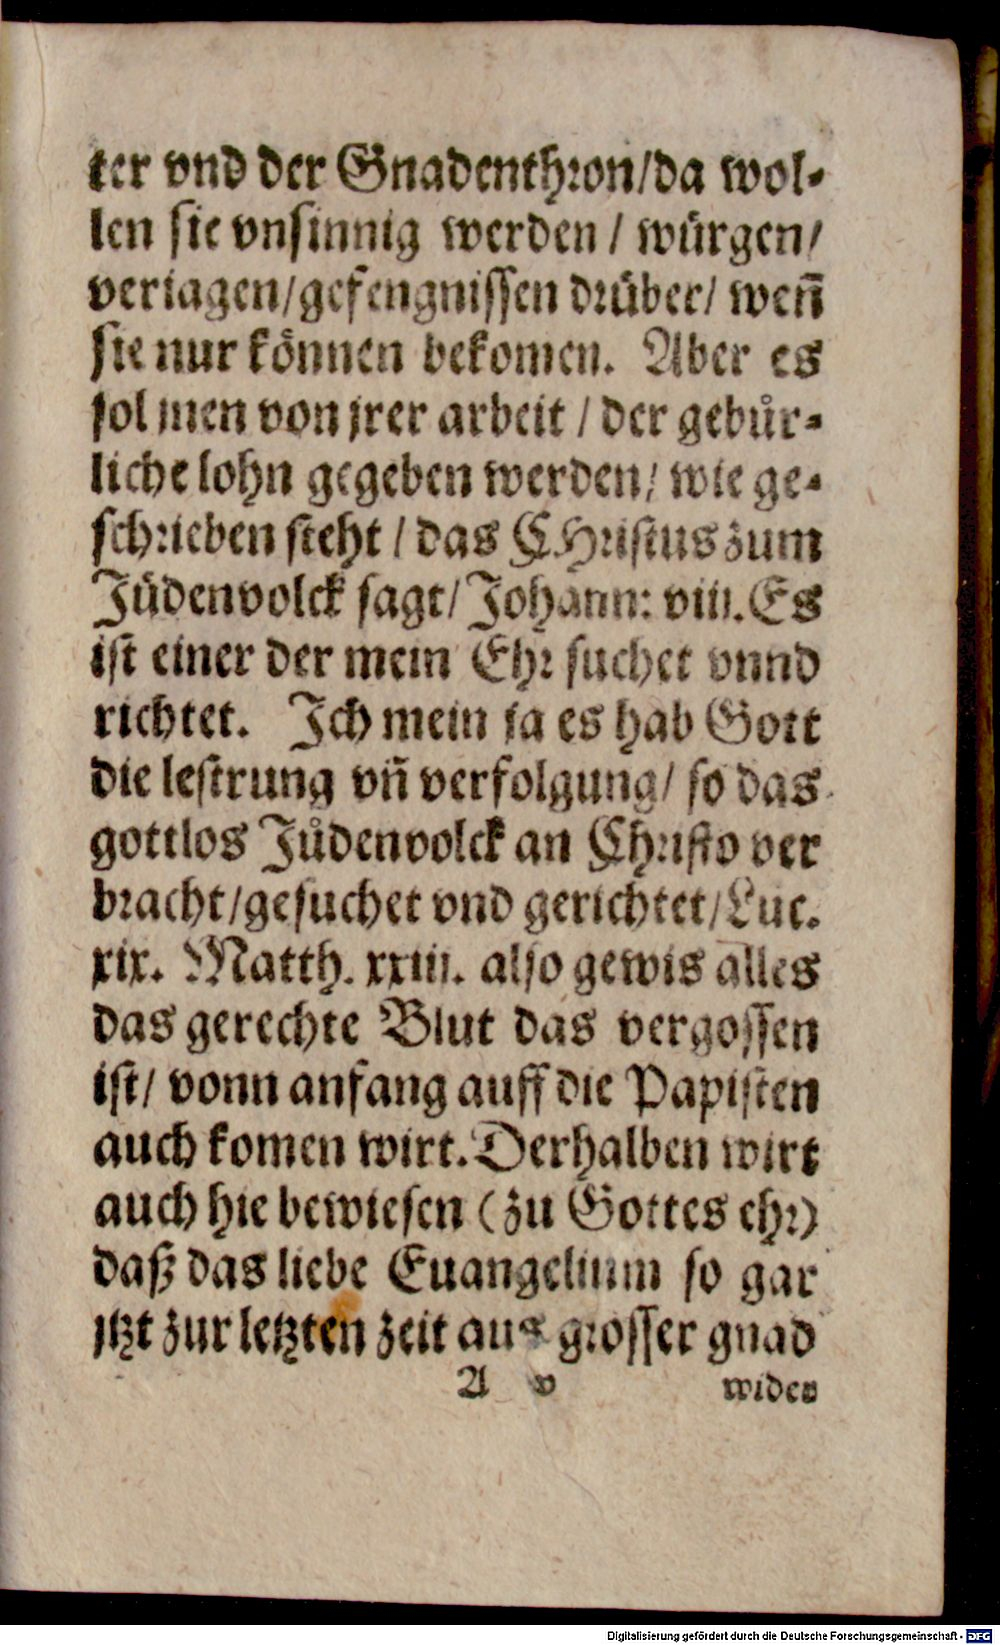 ter vnd der Gnadenthron/da wol-
len sie vnsinnig werden / würgen/
veriagen/gefengnissen drüber/ weñ
sie nur können bekomen. Aber es
sol jnen von jrer arbeit / der gebür-
liche lohn gegeben werden/ wie ge-
schrieben steht / das CHristus zum
Jüdenvolck sagt/ Johann: viii. Es
ist einer der mein Ehr suchet vnnd
richtet. Ich mein ja es hab Gott
die lestrung vñ verfolgung/ so das
gottlos Jůdenvolck an Christo ver
bracht/gesuchet vnd gerichtet/Luc.
xix. Matth. xxiii. also gewis alles
das gerechte Blut das vergossen
ist/ vonn anfang auff die Papisten
auch komen wirt. Derhalben wirt
auch hie bewiesen (zu Gottes ehr)
daß das liebe Euangelium so gar
jtzt zur letzten zeit aus grosser gnad
A v wider
Digitalisierung gefördert durch die Deutsche Forschungsgemeinschaft - DFG